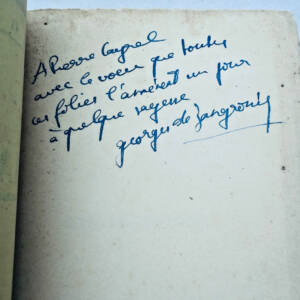 A Pierre
avec le voeu que toutes
ces folies l'amènent un jour
à quelque sagesse
georges de Zangronis